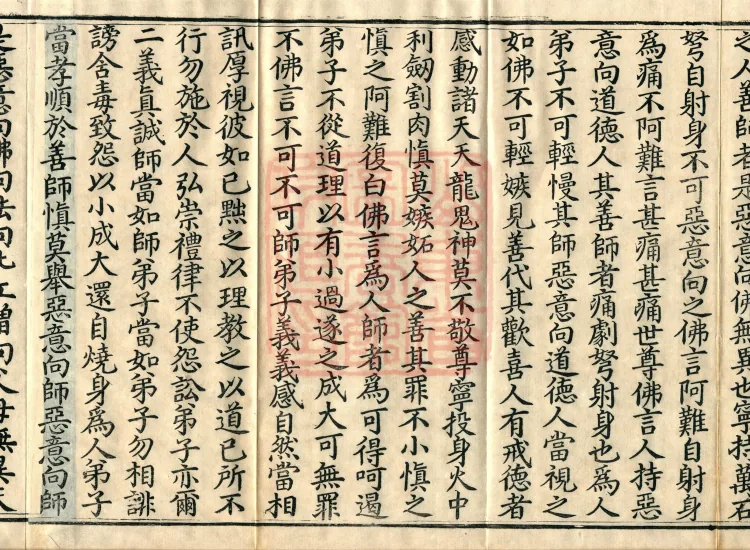 之人善師者是惡意向佛無異也寧持萬石
弩自射身不可惡意向之佛言阿難自射身
為痛不阿難言甚痛甚痛世尊佛言人持惡
意向道德人其善師者痛劇弩射身也為人
弟子不可輕慢其師惡意向道德人當視之
如佛不可輕嫉見善代其歡喜人有戒德者
感動諸天天龍鬼神莫不敬尊寧投身火中
利劒割肉慎莫嫉妬人之善其罪不小慎之
慎之阿難復白佛言為人師者為可得呵遏
弟子不從道理以有小過遂之成大可無罪
不佛言不可不可師弟子義義感自然當相
訊厚視彼如已黙之以理教之以道已所不
行勿施於人弘崇禮律不使怨訟弟子亦爾
二義真誠師當如師弟子當如弟子勿相誹
謗含毒致怨以小成大還自燒身為人弟子
當孝順於善師慎莫舉惡意向師惡意向師
是惡意向佛向法向比丘僧向父母無異天